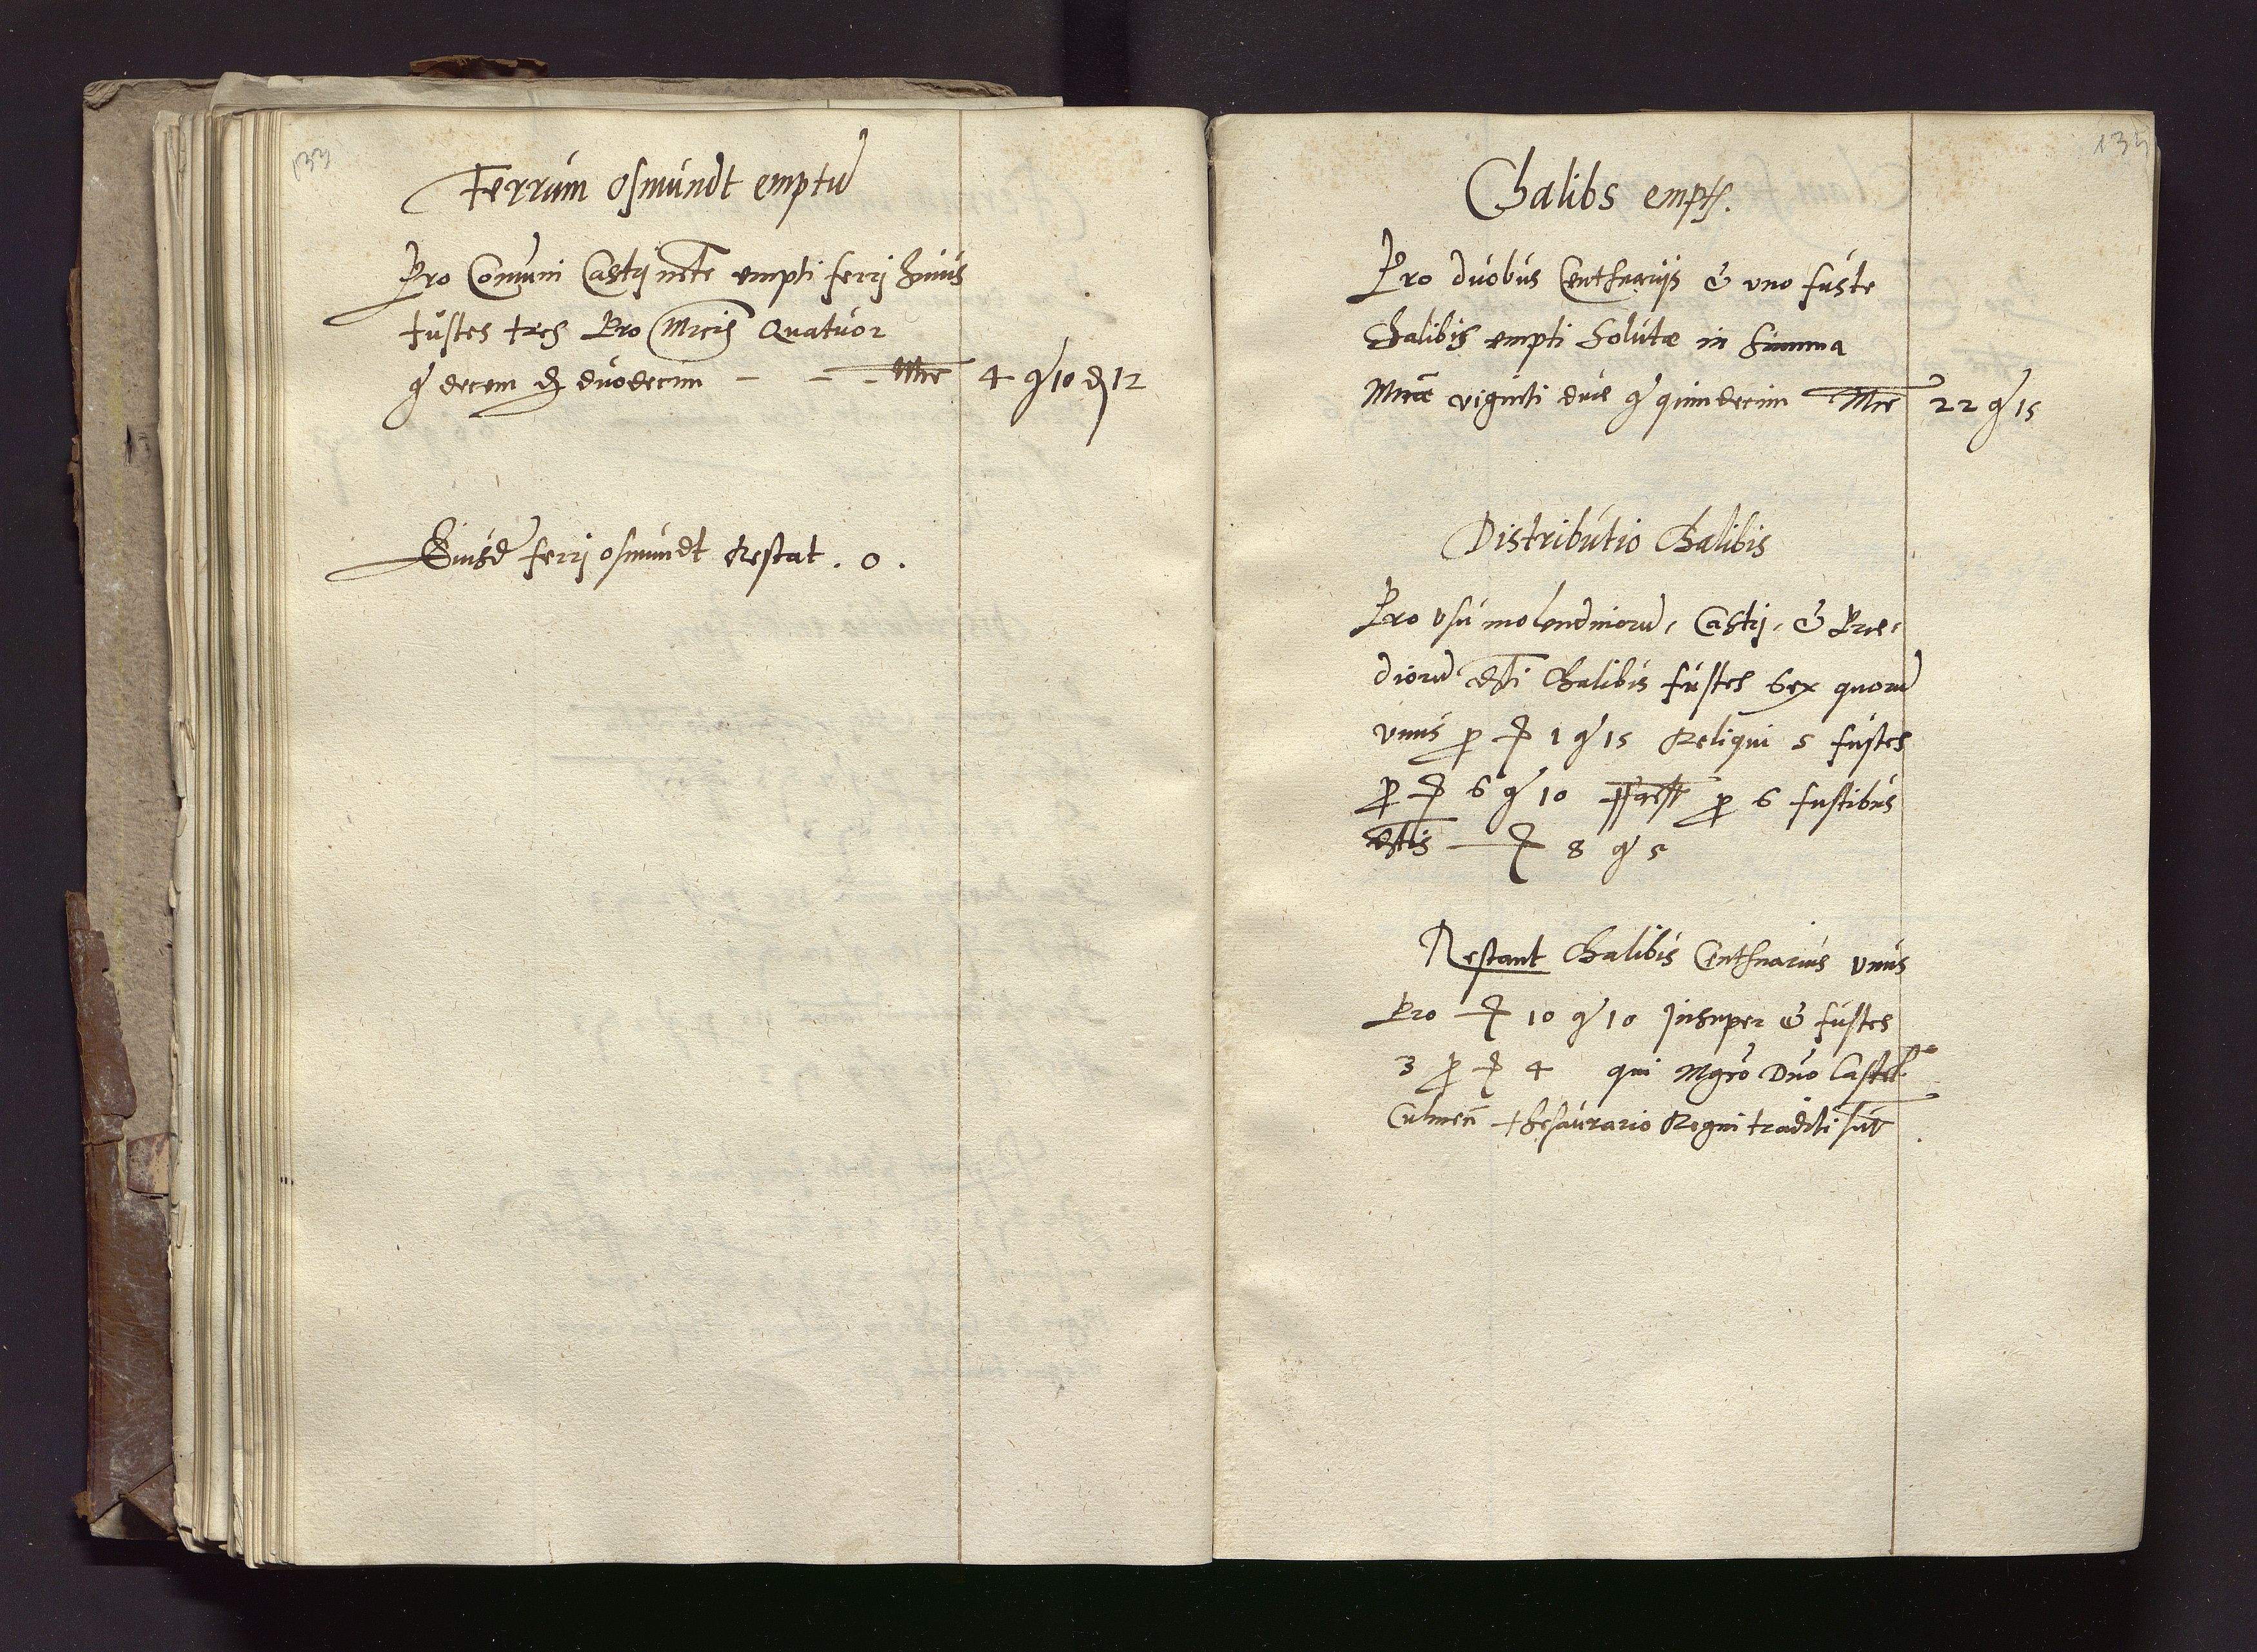 133
Ferrum osmundt emptū
Pro Comuni Castrj ncte empti ferrj huius
fustes tres Pro Mrcis Quatuor
g decem d duodecim - - - Mrc 4 g 10 d 12
Eiusd ferrj osmundt Restat . 0 .
135
Chalibs empt.
Pro duobus Centhnarijs & uno fuste
Chalibis empti Solutæ in Summa
Mrcæ viginti duæ g quindecim Mrc 22 g 15
Distributio Chalibis
Pro vsu molendinorū, Castrj, & Præ-
diorū Chalibis fustes Sex quorū
vnus p 1 g 15 Reliqui 5 fustes
p 6 g 10 p 6 fustibus
8 g 5
Restant Chalibis Centhnarius vnus
Pro 10 g 10 Insuper & fustes
3 p 4 qui Mgco Dno Castell
Culmen Thesaurario Regni traditi sūt